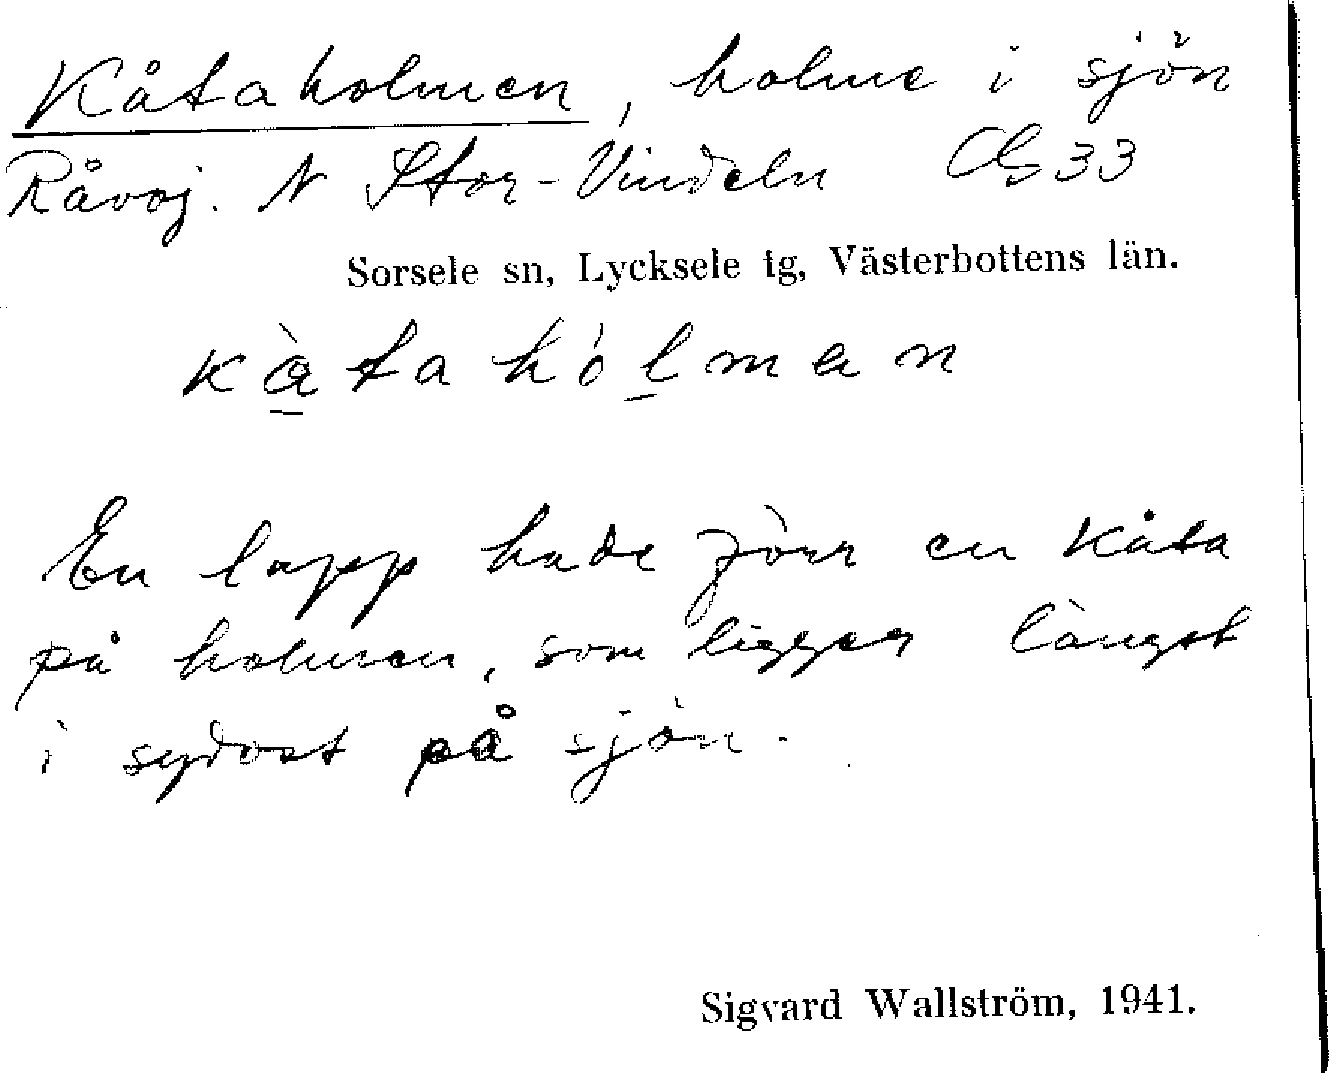 Kåtaholmen, holme i sjön
Råvoj. N Stor-Vindeln CG 33
Sorsele sn, Lycksele tg, Västerbottens län.
kå̀tahólman
En lapp hade förr en kåta
på holmen, som ligger längst
i sydost på sjön.
Sigvard Wallström, 1941.